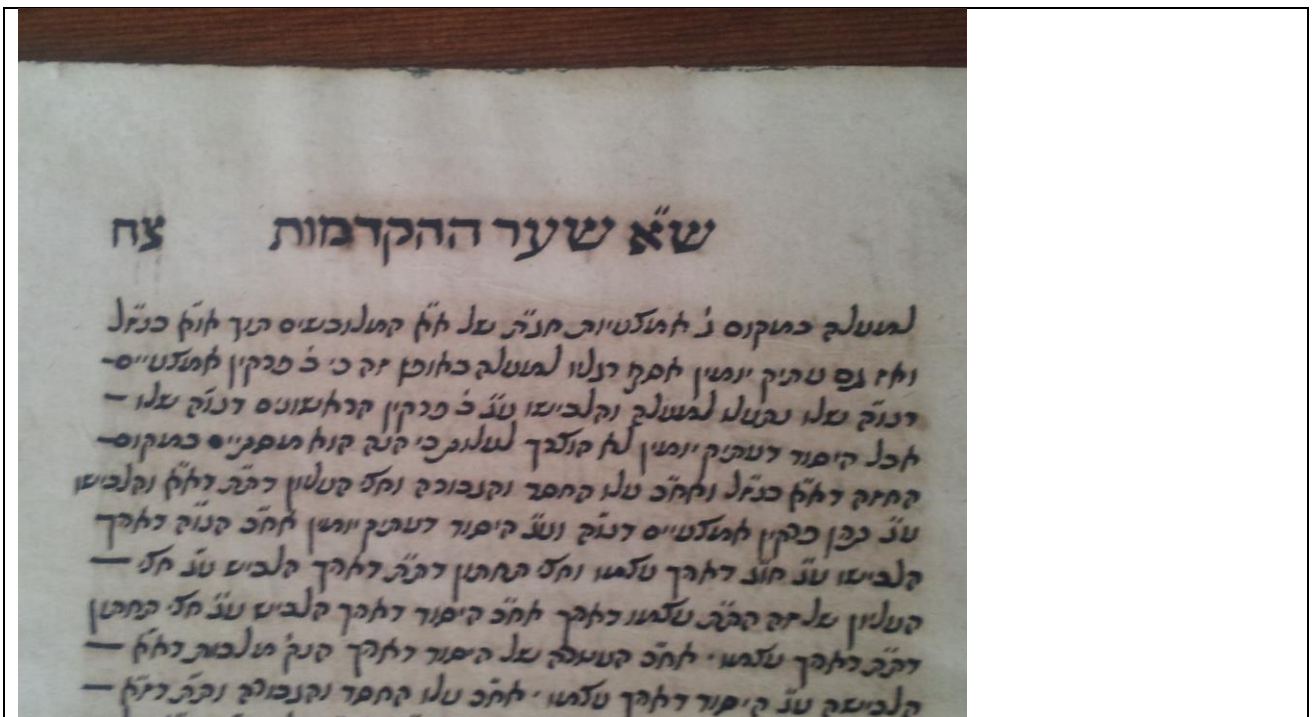 ש"א שער ההקדמות צח
למעלה במקום ג' אמצעיות חג"ת של א"א המלובשים תוך או"א כנז"ל
ואז גם עתיק יומין אסף רגליו למעלה באופן זה כי ב' פרקין אמצעיים
דנו"ה שלו נתעלו למעלה והלבישו ע"ג ב' פרקין הראשונים דנו"ה שלו
אבל היסוד דעתיק יומין לא הוצרך לעלות כי הנה הוא מסתיים במקום
החזה דא"א כנז"ל ואח"כ עלו החסד והגבורה וחצי העליון דת"ת דא"א והלבישו
ע"ג פרקין אמצעיים דנו"ה וע"ג היסוד דעתיק יומין אח"כ הנו"ה דאריך
הלבישו ע"ג חו"ג דאריך עצמו וחצי התחתון דת"ת דאריך הלביש ע"ג חצי
העליון של זה הת"ת עצמו דאריך אח"כ היסוד דאריך הלביש ע"ג חצי התחתון
דת"ת דאריך עצמו. אח"כ העטרה של היסוד דאריך הנק' מלכות דא"א
הלבישה ע"ג היסוד דאריך עצמו. אח"כ עלו החסד והגבורה ות"ת דז"א